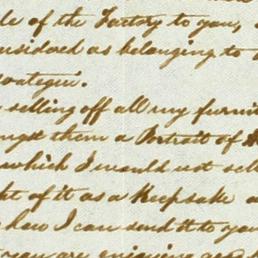 le of the Factory to you,
onsidered as belonging to
selling off all my furni
them a Portrait of
which I would not sell
ht of it as a Keepsake
how I can send it to you
you are enjoying good